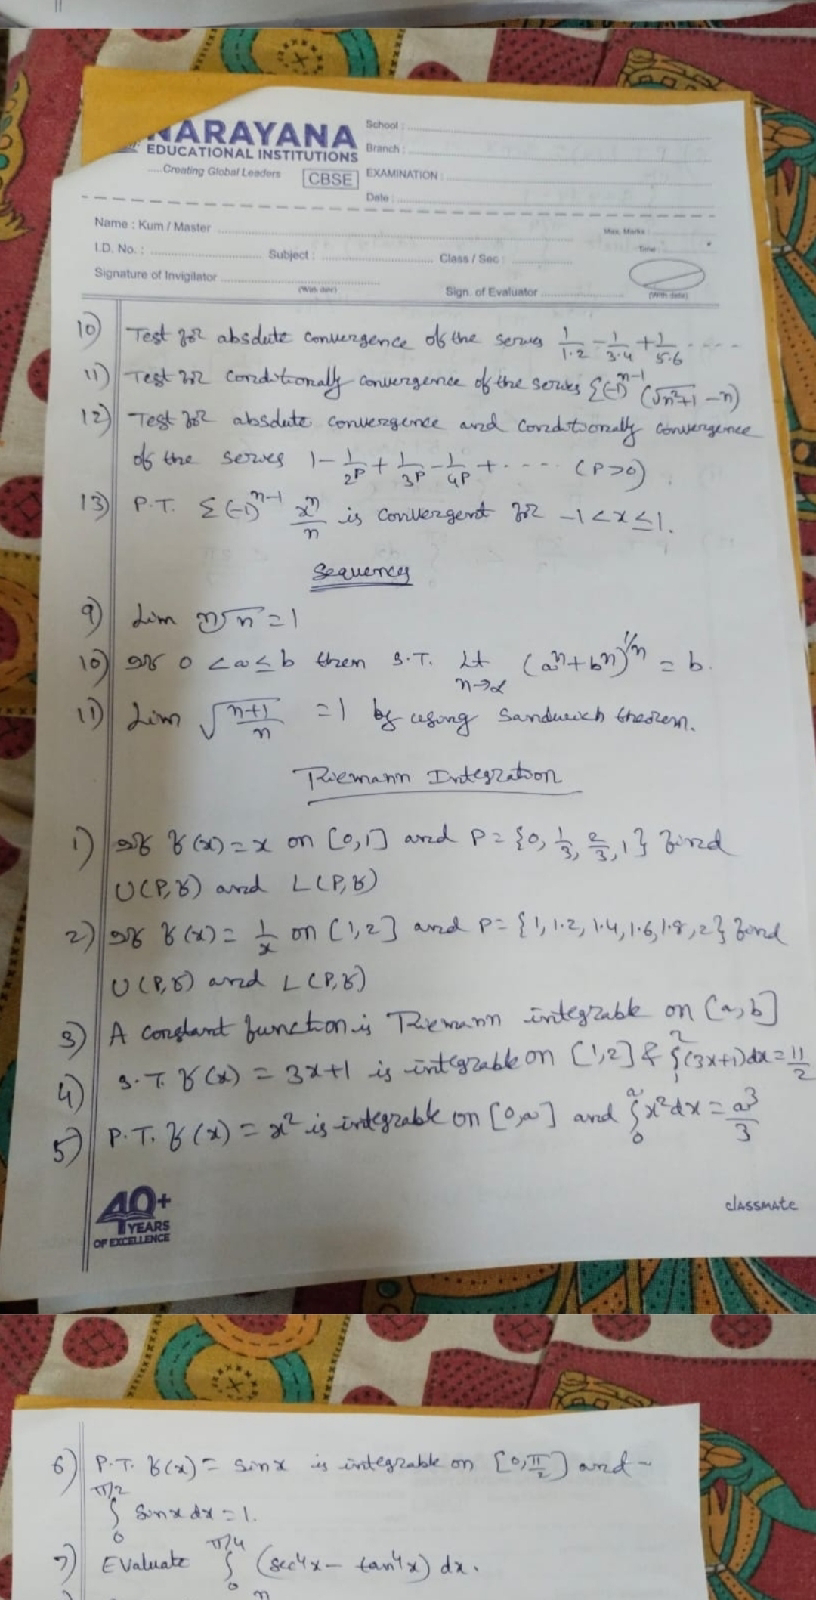 NARAYANA
EDUCATIONAL INSTITUTIONS
.....Creating Global Leaders
CBSE
School :
Branch :
EXAMINATION :
Date :
Name : Kum / Master
Max. Marks :
I.D. No. : Subject : Class / Sec :
Time :
Signature of Invigilator
(With date)
Sign. of Evaluator
(With date)
10) Test for absolute convergence of the series 1/1·2 - 1/3·4 + 1/5·6 - - - -
11) Test for conditionally convergence of the series Σ(-1)^(n-1) (√(n²+1) - n)
12) Test for absolute convergence and conditionally convergence
of the series 1 - 1/2^P + 1/3^P - 1/4^P + - - - - (P>0).
13) P.T. Σ(-1)^(n-1) x^n/n is convergent for -1 < x ≤ 1.
Sequences
9) Lim ⁿ√n = 1
10) If 0 < a ≤ b then S.T. Lt n→∞ (a^n + b^n)^(1/n) = b.
11) Lim √((n+1)/n) = 1 by using Sandwich theorem.
Riemann Integration
1) If f(x) = x on [0,1] and P = {0, 1/3, 2/3, 1} find
U(P,f) and L(P,f)
2) If f(x) = 1/x on [1,2] and P = {1, 1.2, 1.4, 1.6, 1.8, 2} find
U(P,f) and L(P,f)
3) A constant function is Riemann integrable on [a,b]
4) S.T. f(x) = 3x+1 is integrable on [1,2] & ∫₁² (3x+1)dx = 11/2
5) P.T. f(x) = x² is integrable on [0,a] and ∫₀ᵃ x² dx = a³/3
40+
YEARS
OF EXCELLENCE
classmate
6) P.T. f(x) = sinx is integrable on [0, π/2] and -
∫₀^(π/2) sinx dx = 1.
7) Evaluate ∫₀^(π/4) (sec⁴x - tan⁴x) dx.